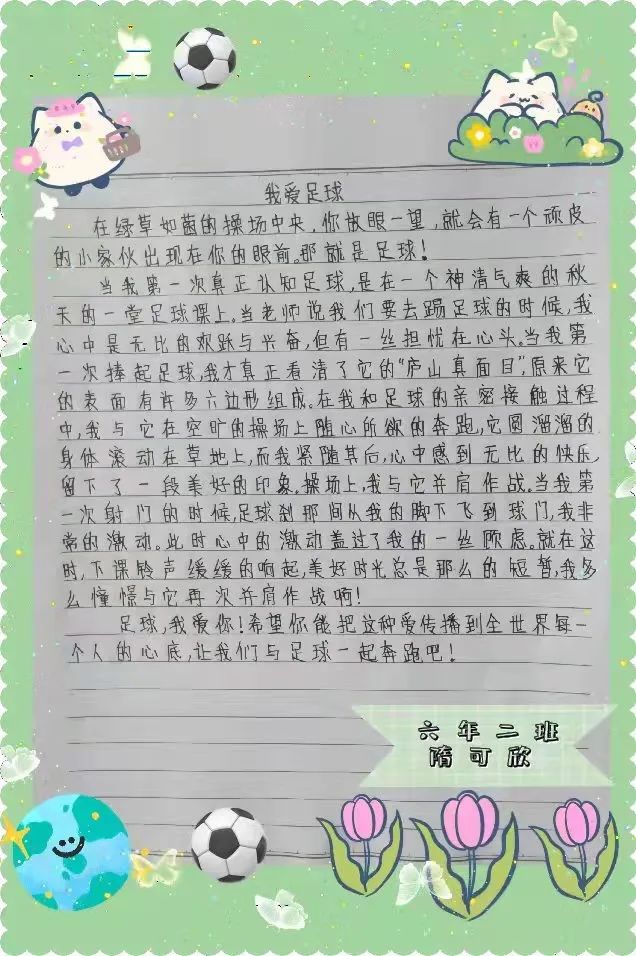 我爱足球
在绿草如茵的操场中央,你放眼一望,就会有一个顽皮
的小家伙出现在你的眼前。那就是足球!
当我第一次真正认知足球,是在一个神清气爽的秋
天的一堂足球课上。当老师说我们要去踢足球的时候,我
心中是无比的欢跃与兴奋,但有一丝担忧在心头。当我第
一次捧起足球,我才真正看清了它的“庐山真面目”,原来它
的表面有许多六边形组成。在我和足球的亲密接触过程
中,我与它在空旷的操场上随心所欲的奔跑,它圆溜溜的
身体滚动在草地上,而我紧随其后,心中感到无比的快乐,
留下了一段美好的印象。操场上,我与它并肩作战。当我第
一次射门的时候,足球刹那间从我的脚下飞到球门,我非
常的激动。此时心中的激动盖过了我的一丝顾虑。就在这
时,下课铃声缓缓的响起,美好时光总是那么的短暂,我多
么憧憬与它再次并肩作战啊!
足球,我爱你!希望你能把这种爱传播到全世界每一
个人的心底,让我们与足球一起奔跑吧!
六年二班
隋可欣